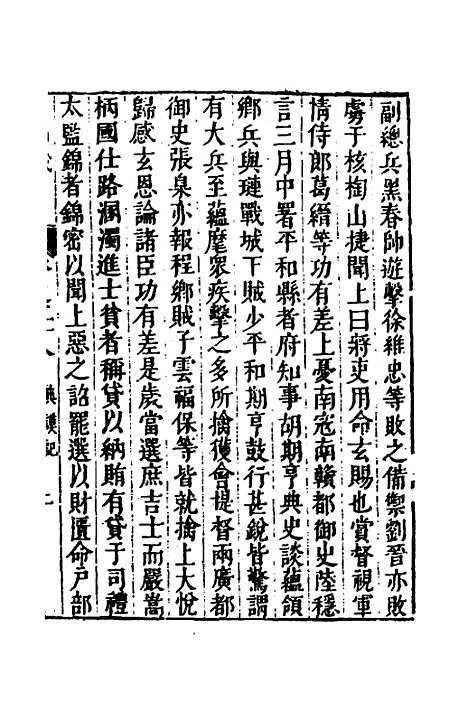 副總兵黑春帥遊擊徐維忠等敗之備禦劉晉亦敗
虜于核桃山捷聞上曰將吏用命玄賜也賞督視軍
情侍郎葛縉等功有差上憂南寇南贛都御史陸穩
言三月中署平和縣者府知事胡期亨典史談蘊領
鄉兵與璉戰城下賊少平和期亨鼓行甚銳皆驚謂
有大兵至蘊麾衆疾擊之多所擒獲會提督兩廣都
御史張臬亦報程鄉賊子雲福保等皆就擒上大悅
歸感玄恩論諸臣功有差是歲當選庶吉士而嚴嵩
柄國仕路溷濁進士貧者稱貸以納賄有貸于司禮
太監錦者錦密以聞上惡之詔罷選以財匱命戸部